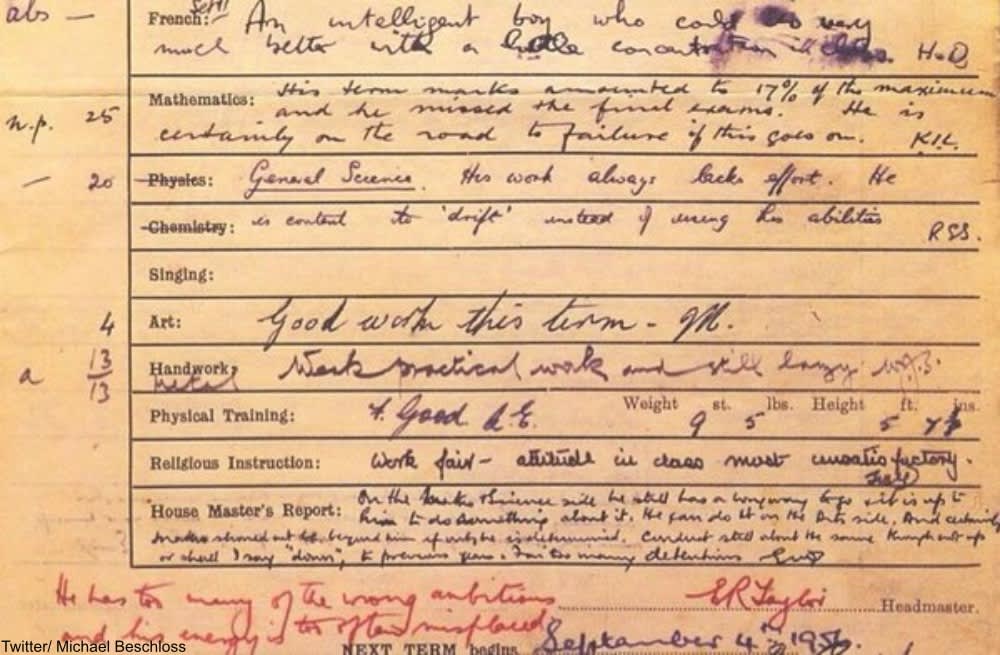 abs — French: Set 11 An intelligent boy who could be very
much better with a little concentration in class. H.D.
Mathematics: His term marks amounted to 17% of the maximum
n.p. 25 and he missed the final exams. He is
certainly on the road to failure if this goes on. K.I.L.
— 20 Physics: General Science. His work always lacks effort. He
Chemistry: is content to 'drift' instead of using his abilities R.S.S.
Singing:
4 Art: Good work this term - GM.
a 13/13 Handwork: Weak practical work and still lazy
metal
Physical Training: F. Good A.E. Weight 9 st. 5 lbs. Height 5 ft. 7½ ins.
Religious Instruction: Work fair - attitude in class most unsatisfactory.
House Master's Report: On the Maths & Science side he still has a long way to go & it is up to
him to do something about it. He can do it on the Arts side. And certainly
Maths should not be beyond him if only he is determined. Conduct still about the same though not up
or shall I say "down", to previous years. Far too many detentions
He has too many of the wrong ambitions
and his energy is too often misplaced
ER Taylor Headmaster.
NEXT TERM begins September 4th 1956.
Twitter/ Michael Beschloss